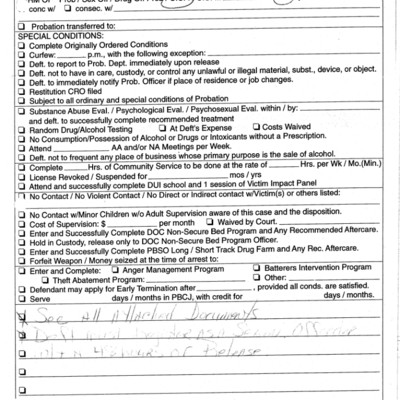 ... conc w/ ☐ consec. w/
☐ Probation transferred to:
SPECIAL CONDITIONS:
☐ Complete Originally Ordered Conditions
☐ Curfew: p.m., with the following exception:
☐ Deft. to report to Prob. Dept. immediately upon release
☐ Deft. not to have in care, custody, or control any unlawful or illegal material, subst., device, or object.
☐ Def. to immediately notify Prob. Officer if place of residence or job changes.
☐ Restitution CRO filed
☐ Subject to all ordinary and special conditions of Probation
☐ Substance Abuse Eval. / Psychological Eval. / Psychosexual Eval. within / by:
and deft. to successfully complete recommended treatment
☐ Random Drug/Alcohol Testing ☐ At Deft's Expense ☐ Costs Waived
☐ No Consumption/Possession of Alcohol or Drugs or Intoxicants without a Prescription.
☐ Attend AA and/or NA Meetings per Week.
☐ Deft. not to frequent any place of business whose primary purpose is the sale of alcohol.
☐ Complete Hrs. of Community Service to be done at the rate of Hrs. per Wk / Mo.(Min.)
☐ License Revoked / Suspended for mos / yrs
☐ Attend and successfully complete DUI school and 1 session of Victim Impact Panel
☐ No Contact / No Violent Contact / No Direct or Indirect contact w/Victim(s) or others listed:
☐ No Contact w/Minor Children w/o Adult Supervision aware of this case and the disposition.
☐ Cost of Supervision: $ per month ☐ Waived by Court.
☐ Enter and Successfully Complete DOC Non-Secure Bed Program and Any Recommended Aftercare.
☐ Hold in Custody, release only to DOC Non-Secure Bed Program Officer.
☐ Enter and Successfully Complete PBSO Long / Short Track Drug Farm and Any Rec. Aftercare.
☐ Forfeit Weapon / Money seized at the time of arrest to:
☐ Enter and Complete: ☐ Anger Management Program ☐ Batterers Intervention Program
☐ Theft Abatement Program: ☐ Other:
☐ Defendant may apply for Early Termination after , provided all conds. are satisfied.
☐ Serve days / months in PBCJ, with credit for days / months.
See All Attached Documents
Deft must Register as a Sexual Offender
within 48 hours of Release